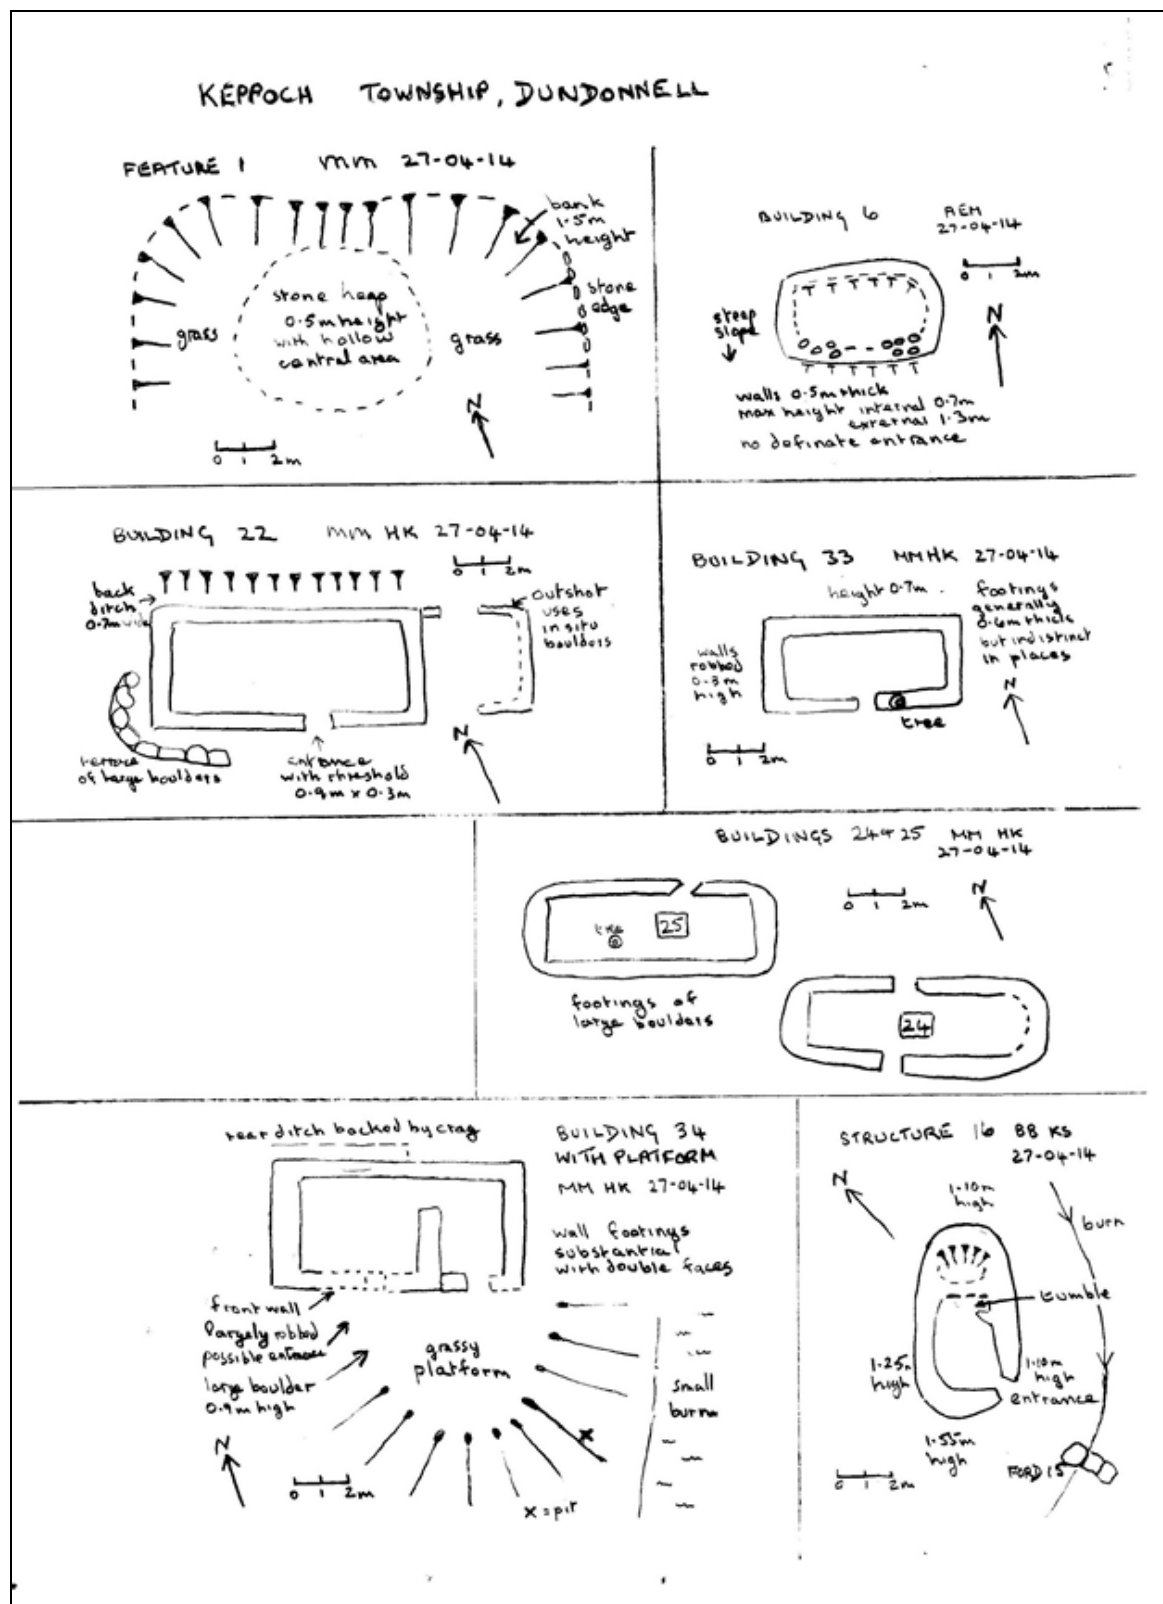 KEPPOCH TOWNSHIP, DUNDONNELL
FEATURE 1 MM 27-04-14
bank
1.5m
height
stone
edge
stone heap
0.5m height
with hollow
central area
grass
grass
N
0 1 2m
BUILDING 6 AEM
27-04-14
0 1 2m
N
steep
slope
walls 0.5m thick
max height internal 0.7m
external 1.3m
no definate entrance
BUILDING 22 MM HK 27-04-14
0 1 2m
back
ditch
0.7m wide
outshot
uses
in situ
boulders
N
terrace
of large boulders
entrance
with threshold
0.9m x 0.3m
BUILDING 33 MM HK 27-04-14
height 0.7m.
footings
generally
0.6m thick
but indistinct
in places
walls
robbed
0.3m
high
N
tree
0 1 2m
BUILDINGS 24 & 25 MM HK
27-04-14
0 1 2m
N
tree
25
footings of
large boulders
24
rear ditch backed by crag
BUILDING 34
WITH PLATFORM
MM HK 27-04-14
wall footings
substantial
with double faces
front wall
largely robbed
possible entrance
large boulder
0.9m high
grassy
platform
small
burn
x
N
0 1 2m
x = pit
STRUCTURE 16 BB KS
27-04-14
N
1.10m
high
burn
tumble
1.25m
high
1.10m
high
entrance
1.55m
high
FORD 15
0 1 2m